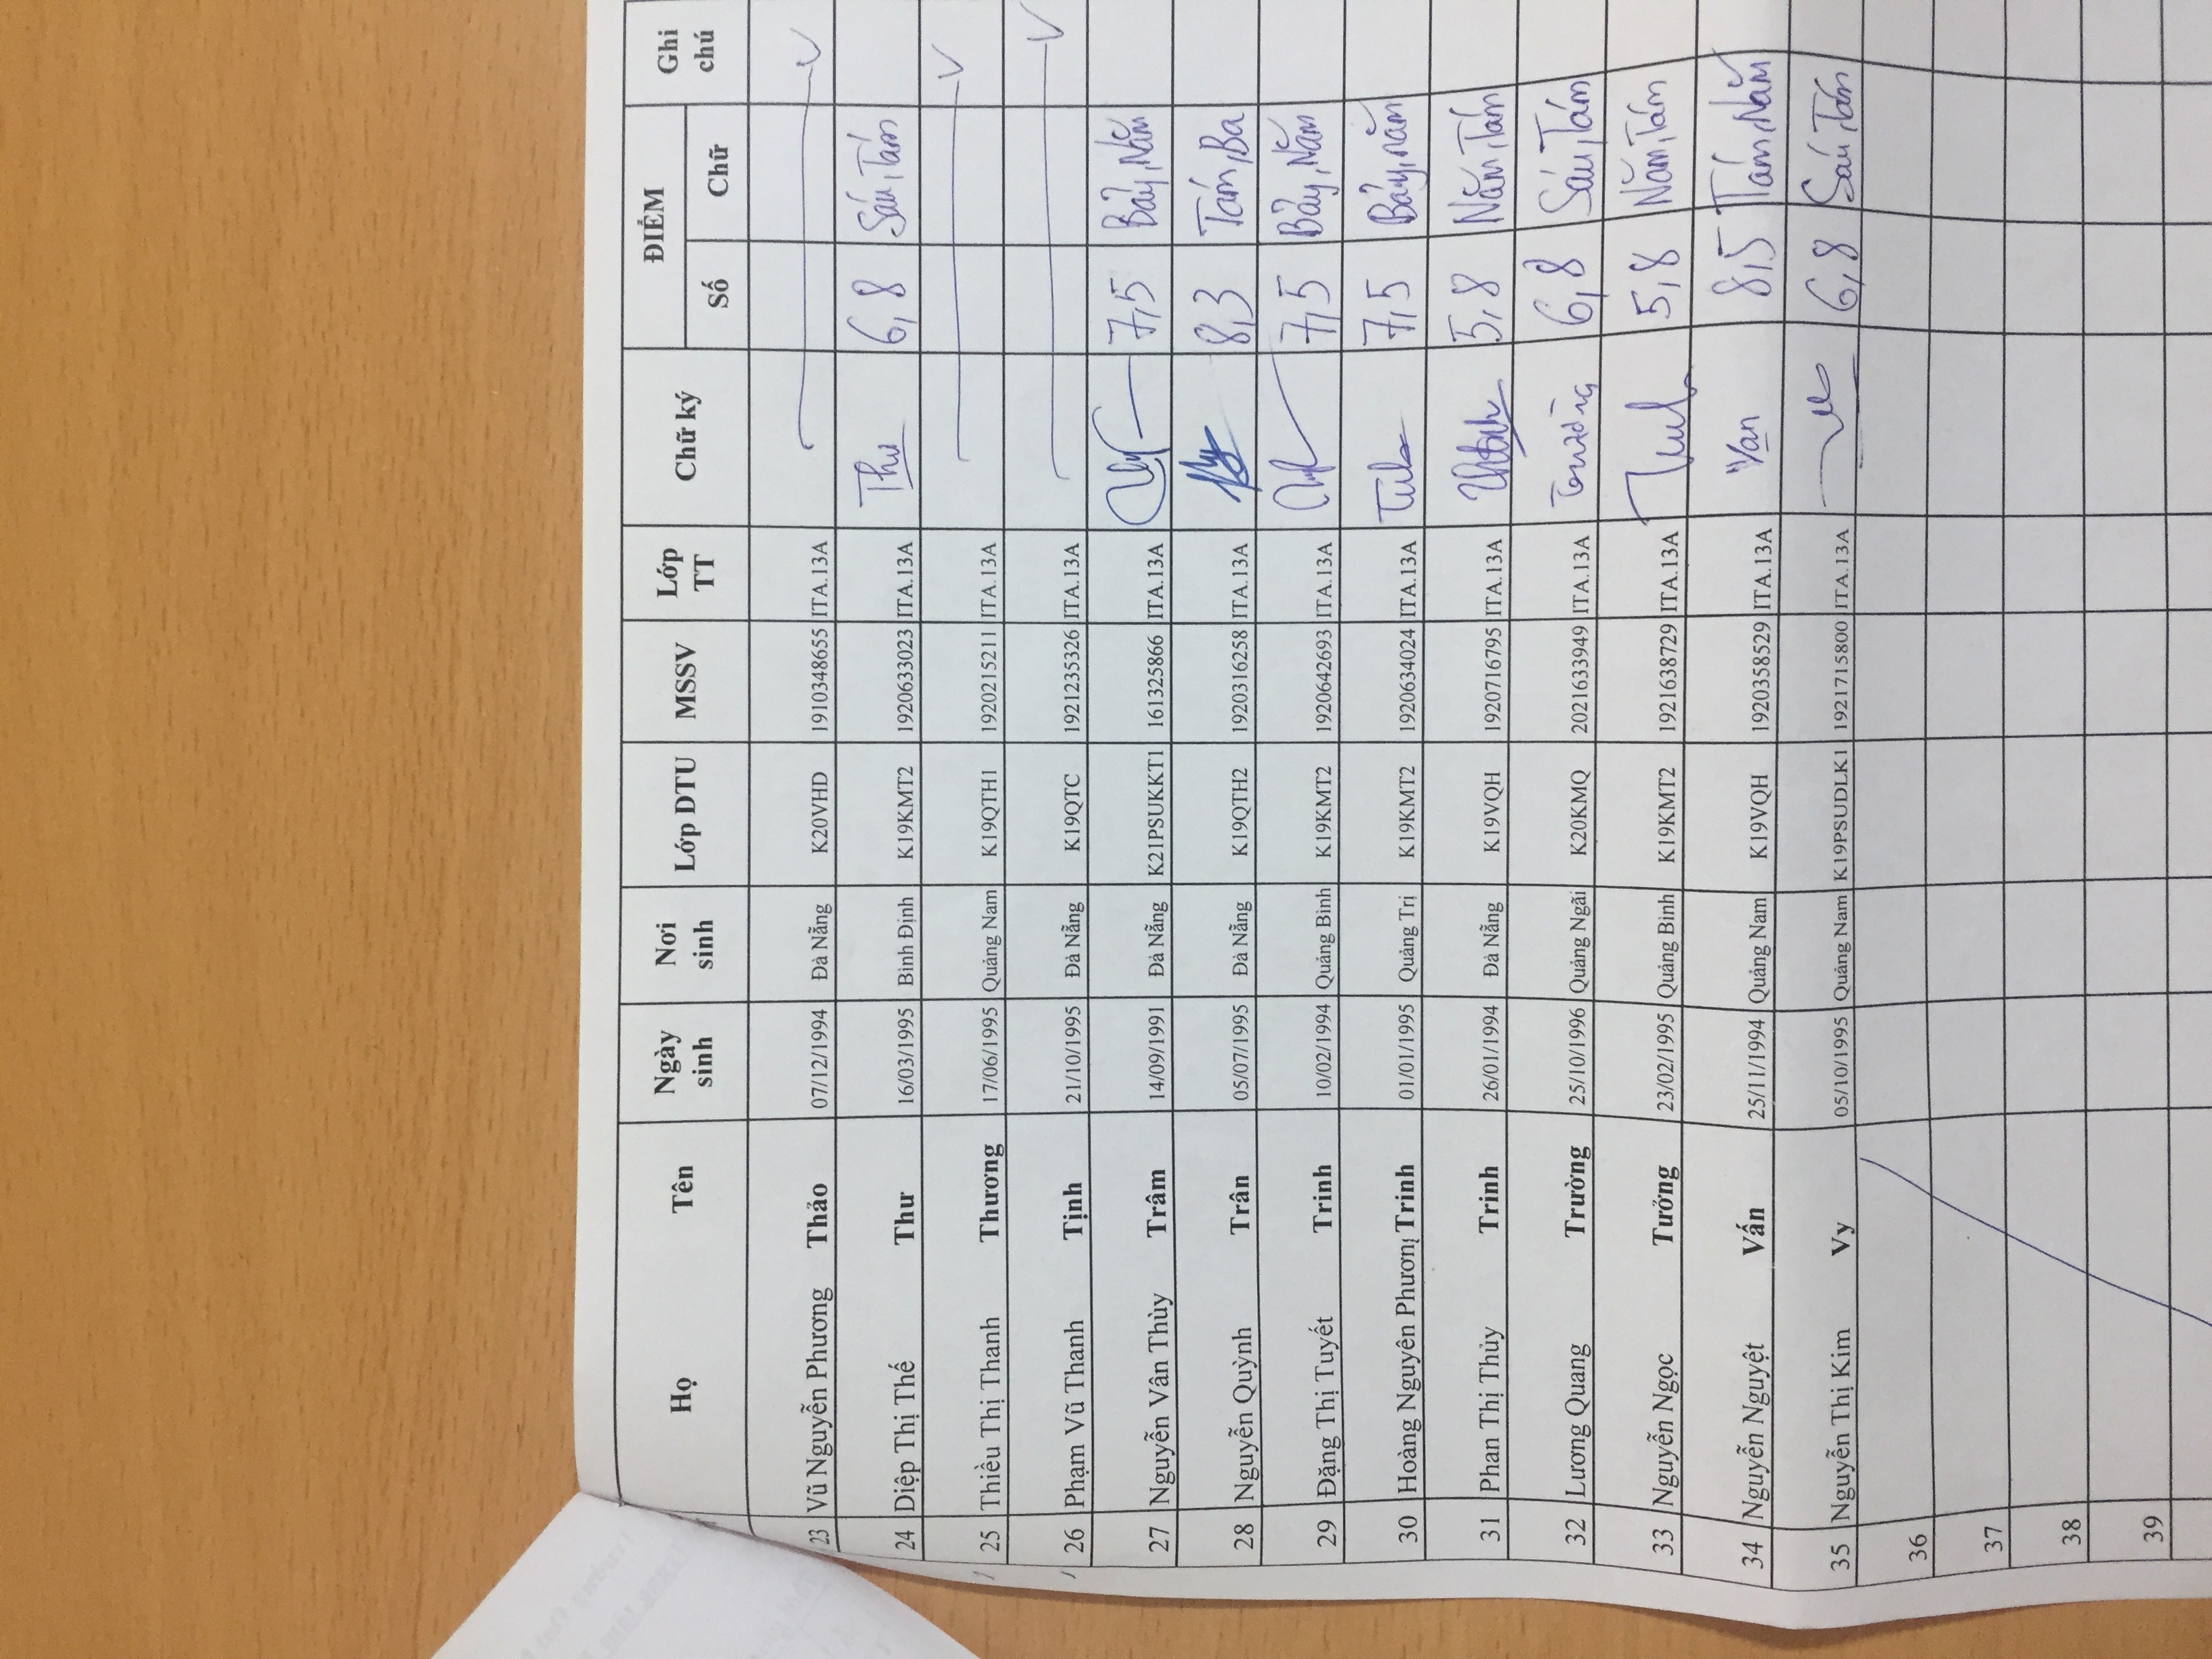 Họ Tên Ngày sinh Nơi sinh Lớp DTU MSSV Lớp TT Chữ ký ĐIỂM Ghi chú
Số Chữ
23 Vũ Nguyễn Phương Thảo 07/12/1994 Đà Nẵng K20VHD 1910348655 ITA.13A V
24 Diệp Thị Thế Thư 16/03/1995 Bình Định K19KMT2 1920633023 ITA.13A Thư 6,8 Sáu,Tám
25 Thiều Thị Thanh Thương 17/06/1995 Quảng Nam K19QTH1 1920215211 ITA.13A V
26 Phạm Vũ Thanh Tịnh 21/10/1995 Đà Nẵng K19QTC 1921235326 ITA.13A V
27 Nguyễn Vân Thùy Trâm 14/09/1991 Đà Nẵng K21PSUKKT1 161325866 ITA.13A 7,5 Bảy,Năm
28 Nguyễn Quỳnh Trân 05/07/1995 Đà Nẵng K19QTH2 1920316258 ITA.13A 8,3 Tám,Ba
29 Đặng Thị Tuyết Trinh 10/02/1994 Quảng Bình K19KMT2 1920642693 ITA.13A 7,5 Bảy,Năm
30 Hoàng Nguyên Phương Trinh 01/01/1995 Quảng Trị K19KMT2 1920634024 ITA.13A 7,5 Bảy,năm
31 Phan Thị Thùy Trinh 26/01/1994 Đà Nẵng K19VQH 1920716795 ITA.13A 5,8 Năm,Tám
32 Lương Quang Trường 25/10/1996 Quảng Ngãi K20KMQ 2021633949 ITA.13A Trường 6,8 Sáu,Tám
33 Nguyễn Ngọc Tưởng 23/02/1995 Quảng Bình K19KMT2 1921638729 ITA.13A 5,8 Năm,Tám
34 Nguyễn Nguyệt Vấn 25/11/1994 Quảng Nam K19VQH 1920358529 ITA.13A Van 8,5 Tám,Năm
35 Nguyễn Thị Kim Vy 05/10/1995 Quảng Nam K19PSUDLK1 1921715800 ITA.13A 6,8 Sáu,Tám
36
37
38
39